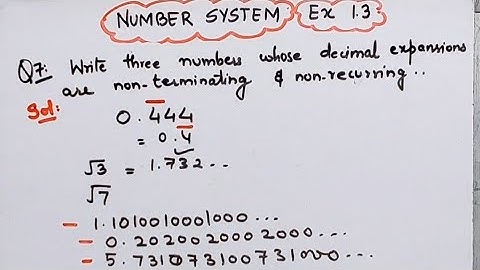 NUMBER SYSTEM : Ex 1.3
Q7: Write three numbers whose decimal expansions
are non-terminating & non-recurring..
Sol: 0.444
= 0.4̅
√3 = 1.732..
√7
- 1.1010010001000...
- 0.202002000 2000...
- 5.731073100731000...